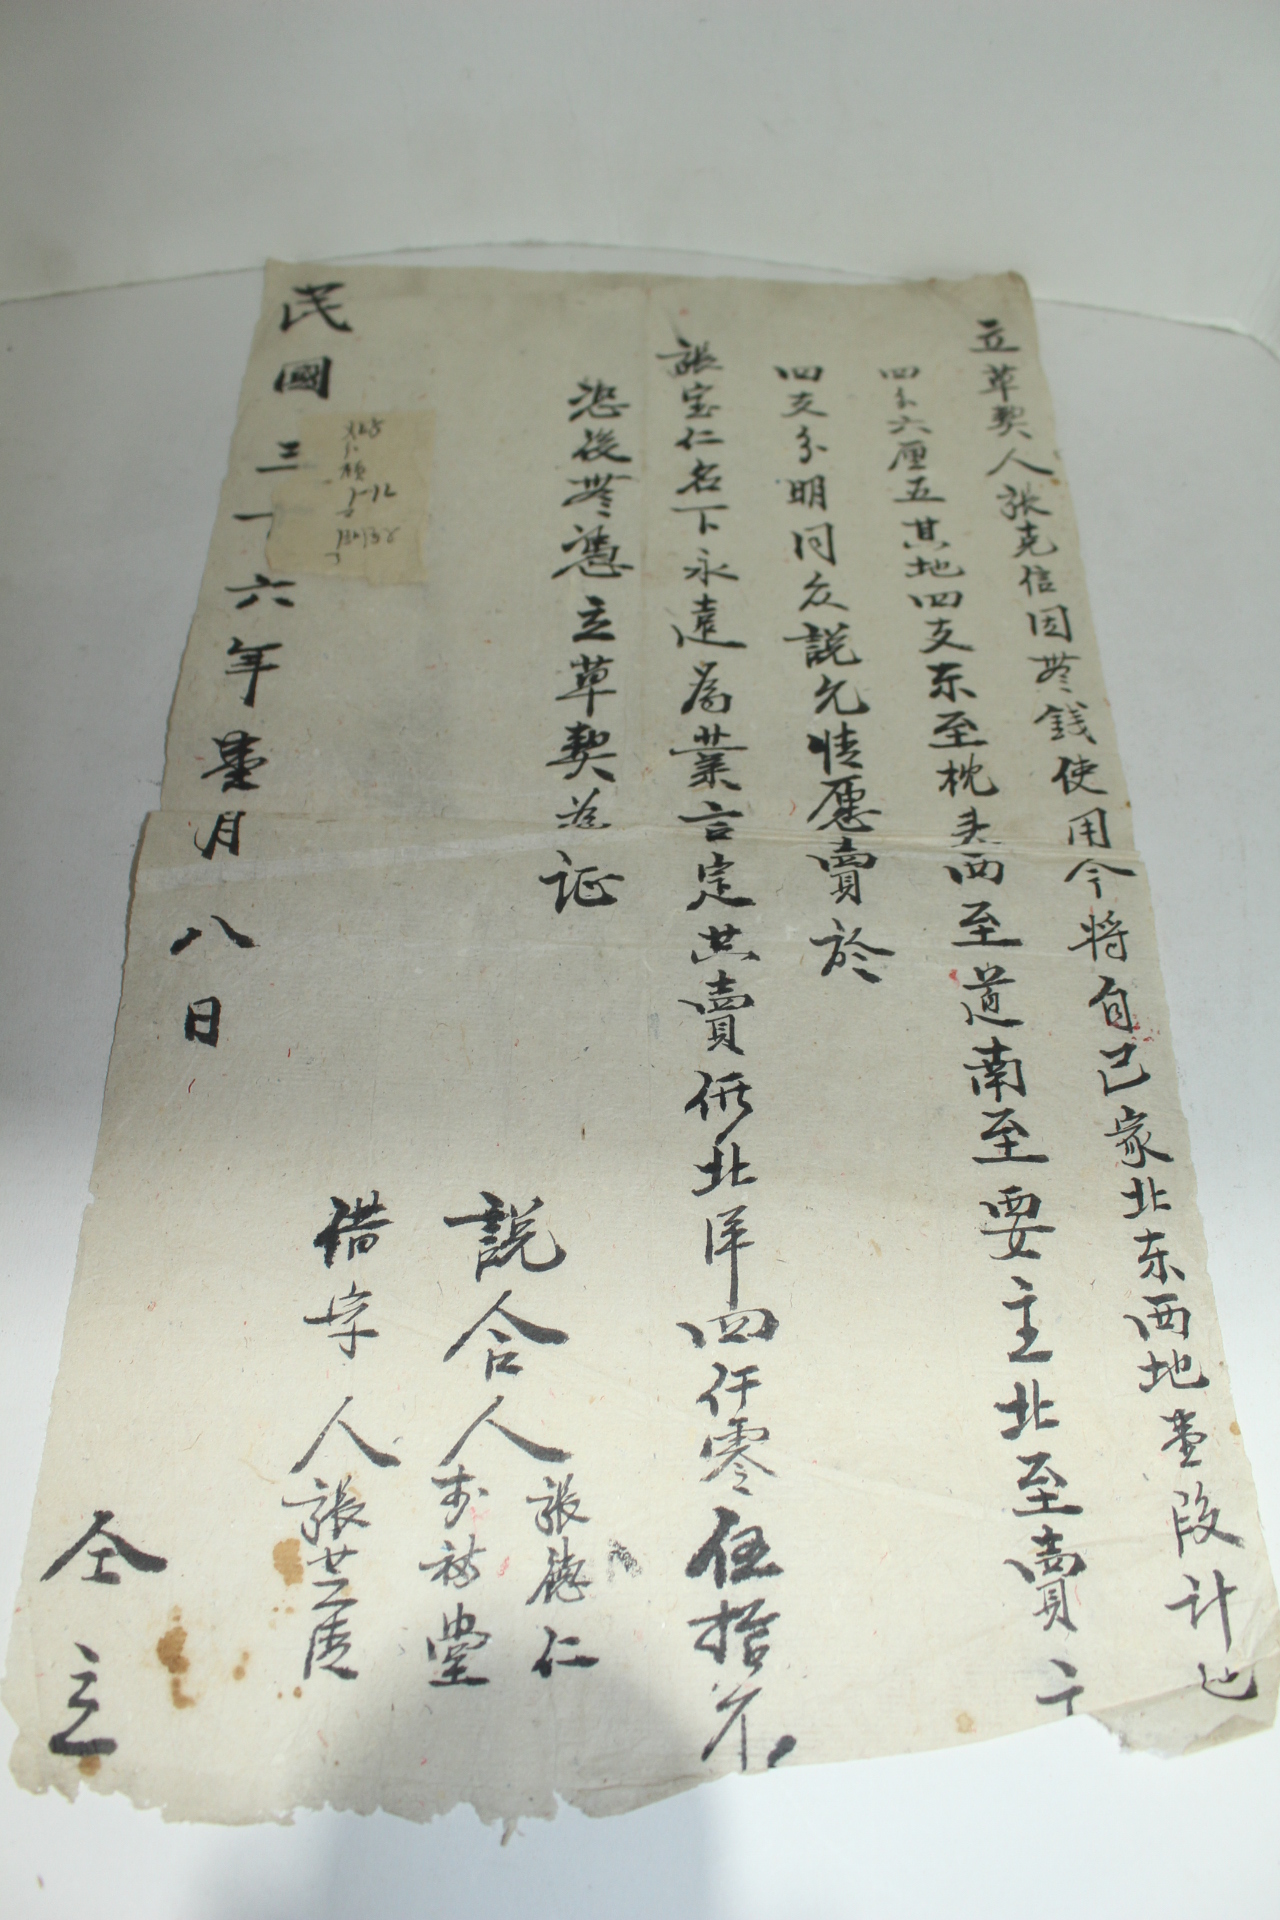 立草契人張克信因無錢使用今將自己家北东西地壹段計地
四分六厘五其地四支东至枕头西至道南至要主北至賣主
四支分明同众說允情愿賣於
張宝仁名下永遠為業言定共賣價北洋四仟零伍拾元
恐後無憑立草契為证
說合人 張德仁
堂
借字人 張
民國三十六年壹月八日
仝立